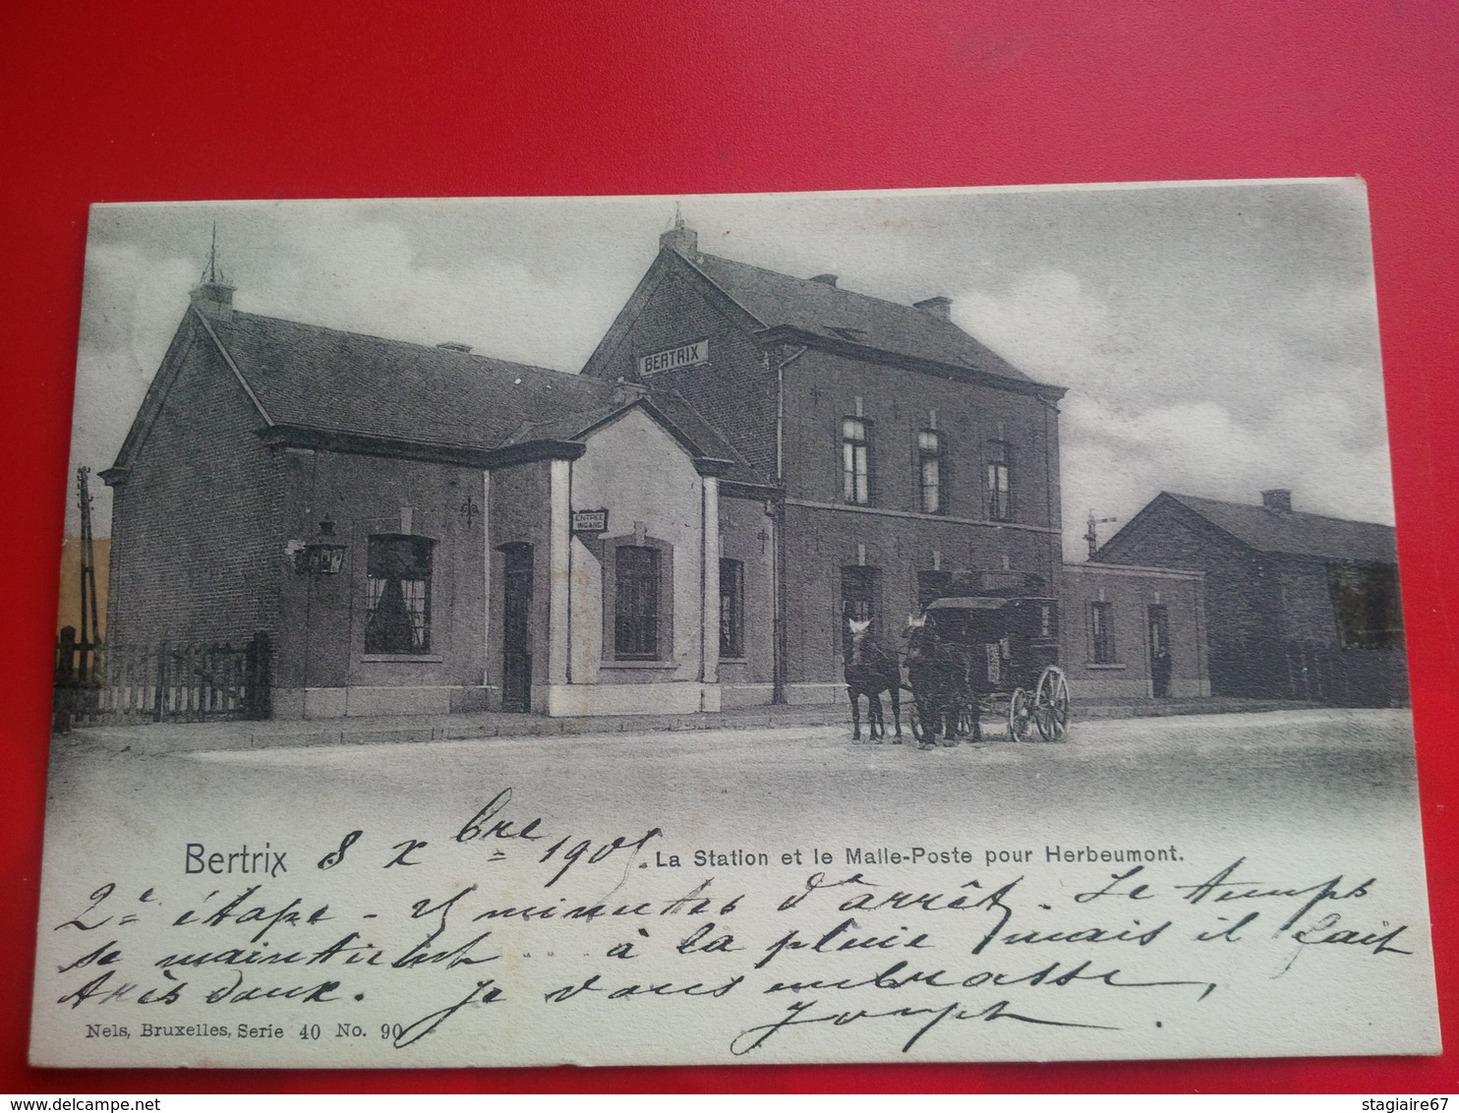 BERTRIX
ENTREE
INGANG
Bertrix 8 Xbre 1905. La Station et le Malle-Poste pour Herbeumont.
2e étape - 25 minutes d'arrêt. Le temps
se maintient ... à la pluie mais il fait
très doux. Je vous embrasse,
Joseph.
Nels, Bruxelles, Serie 40 No. 90
delcampe.net
stagiaire67